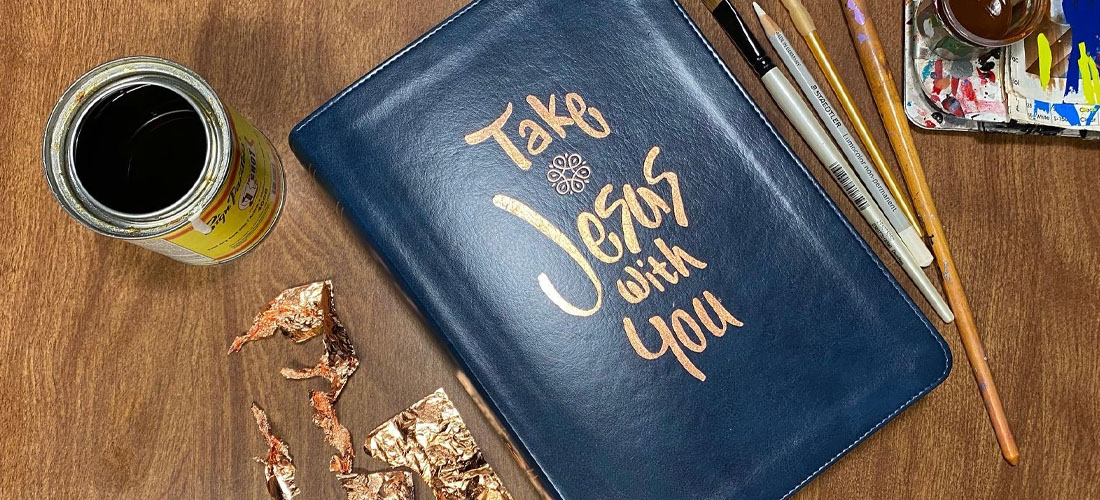 Take
Jesus
with
you
STAEDTLER Lumocolor non-permanent